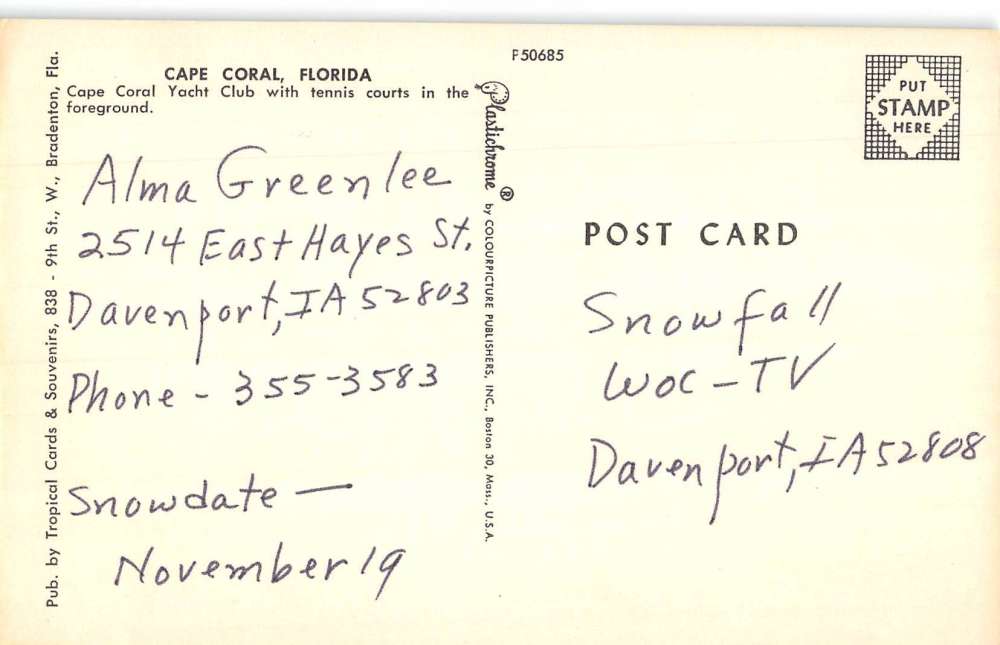 F50685
CAPE CORAL, FLORIDA
Cape Coral Yacht Club with tennis courts in the
foreground.
PUT
STAMP
HERE
POST CARD
Alma Greenlee
2514 East Hayes St.
Davenport, IA 52803
Phone - 355-3583
Snowdate —
November 19
Snowfall
WOC-TV
Davenport, IA 52808
Pub. by Tropical Cards & Souvenirs, 838 - 9th St., W., Bradenton, Fla.
Plastichrome ® by COLOURPICTURE PUBLISHERS, INC., Boston 30, Mass., U.S.A.